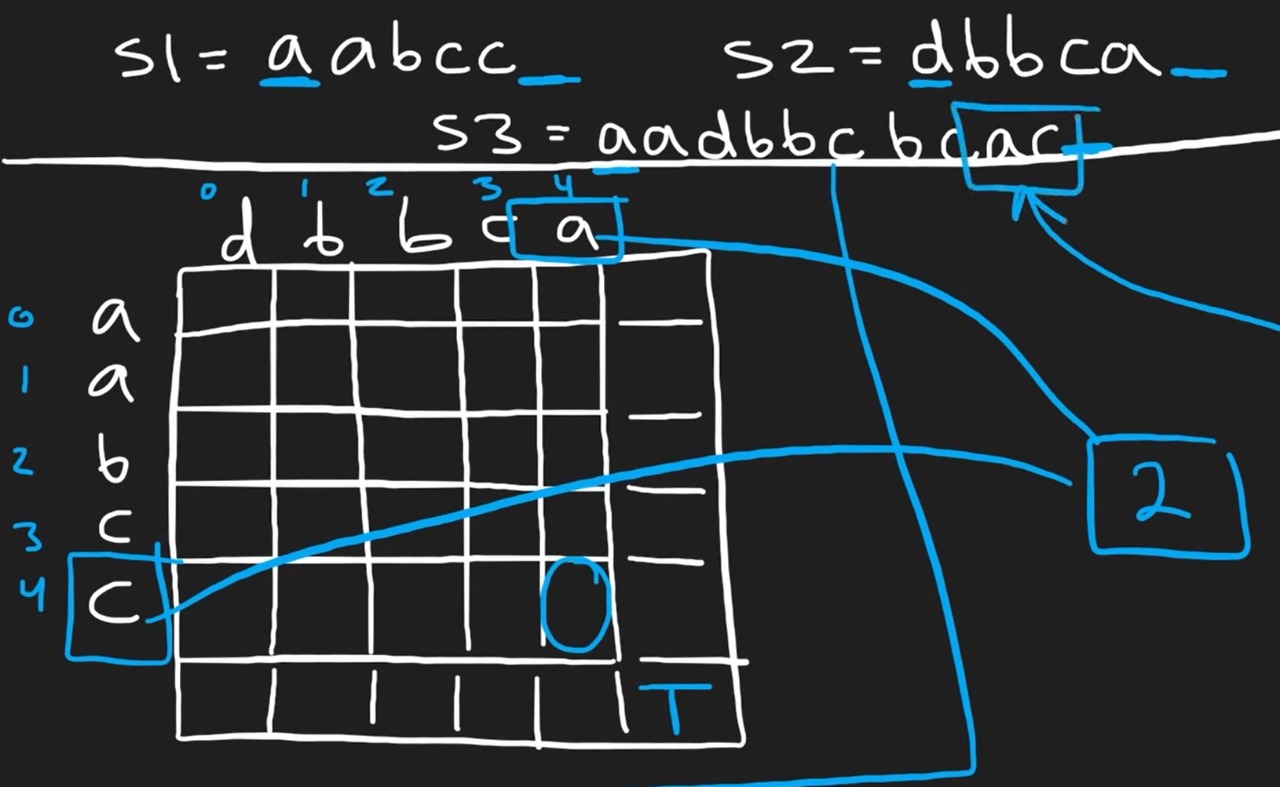 s1 = aabcc_ s2 = dbbca_
s3 = aadbbcbcac
0 1 2 3 4
d b b c a
0 a
1 a
2 b
3 c
4 c
2
T